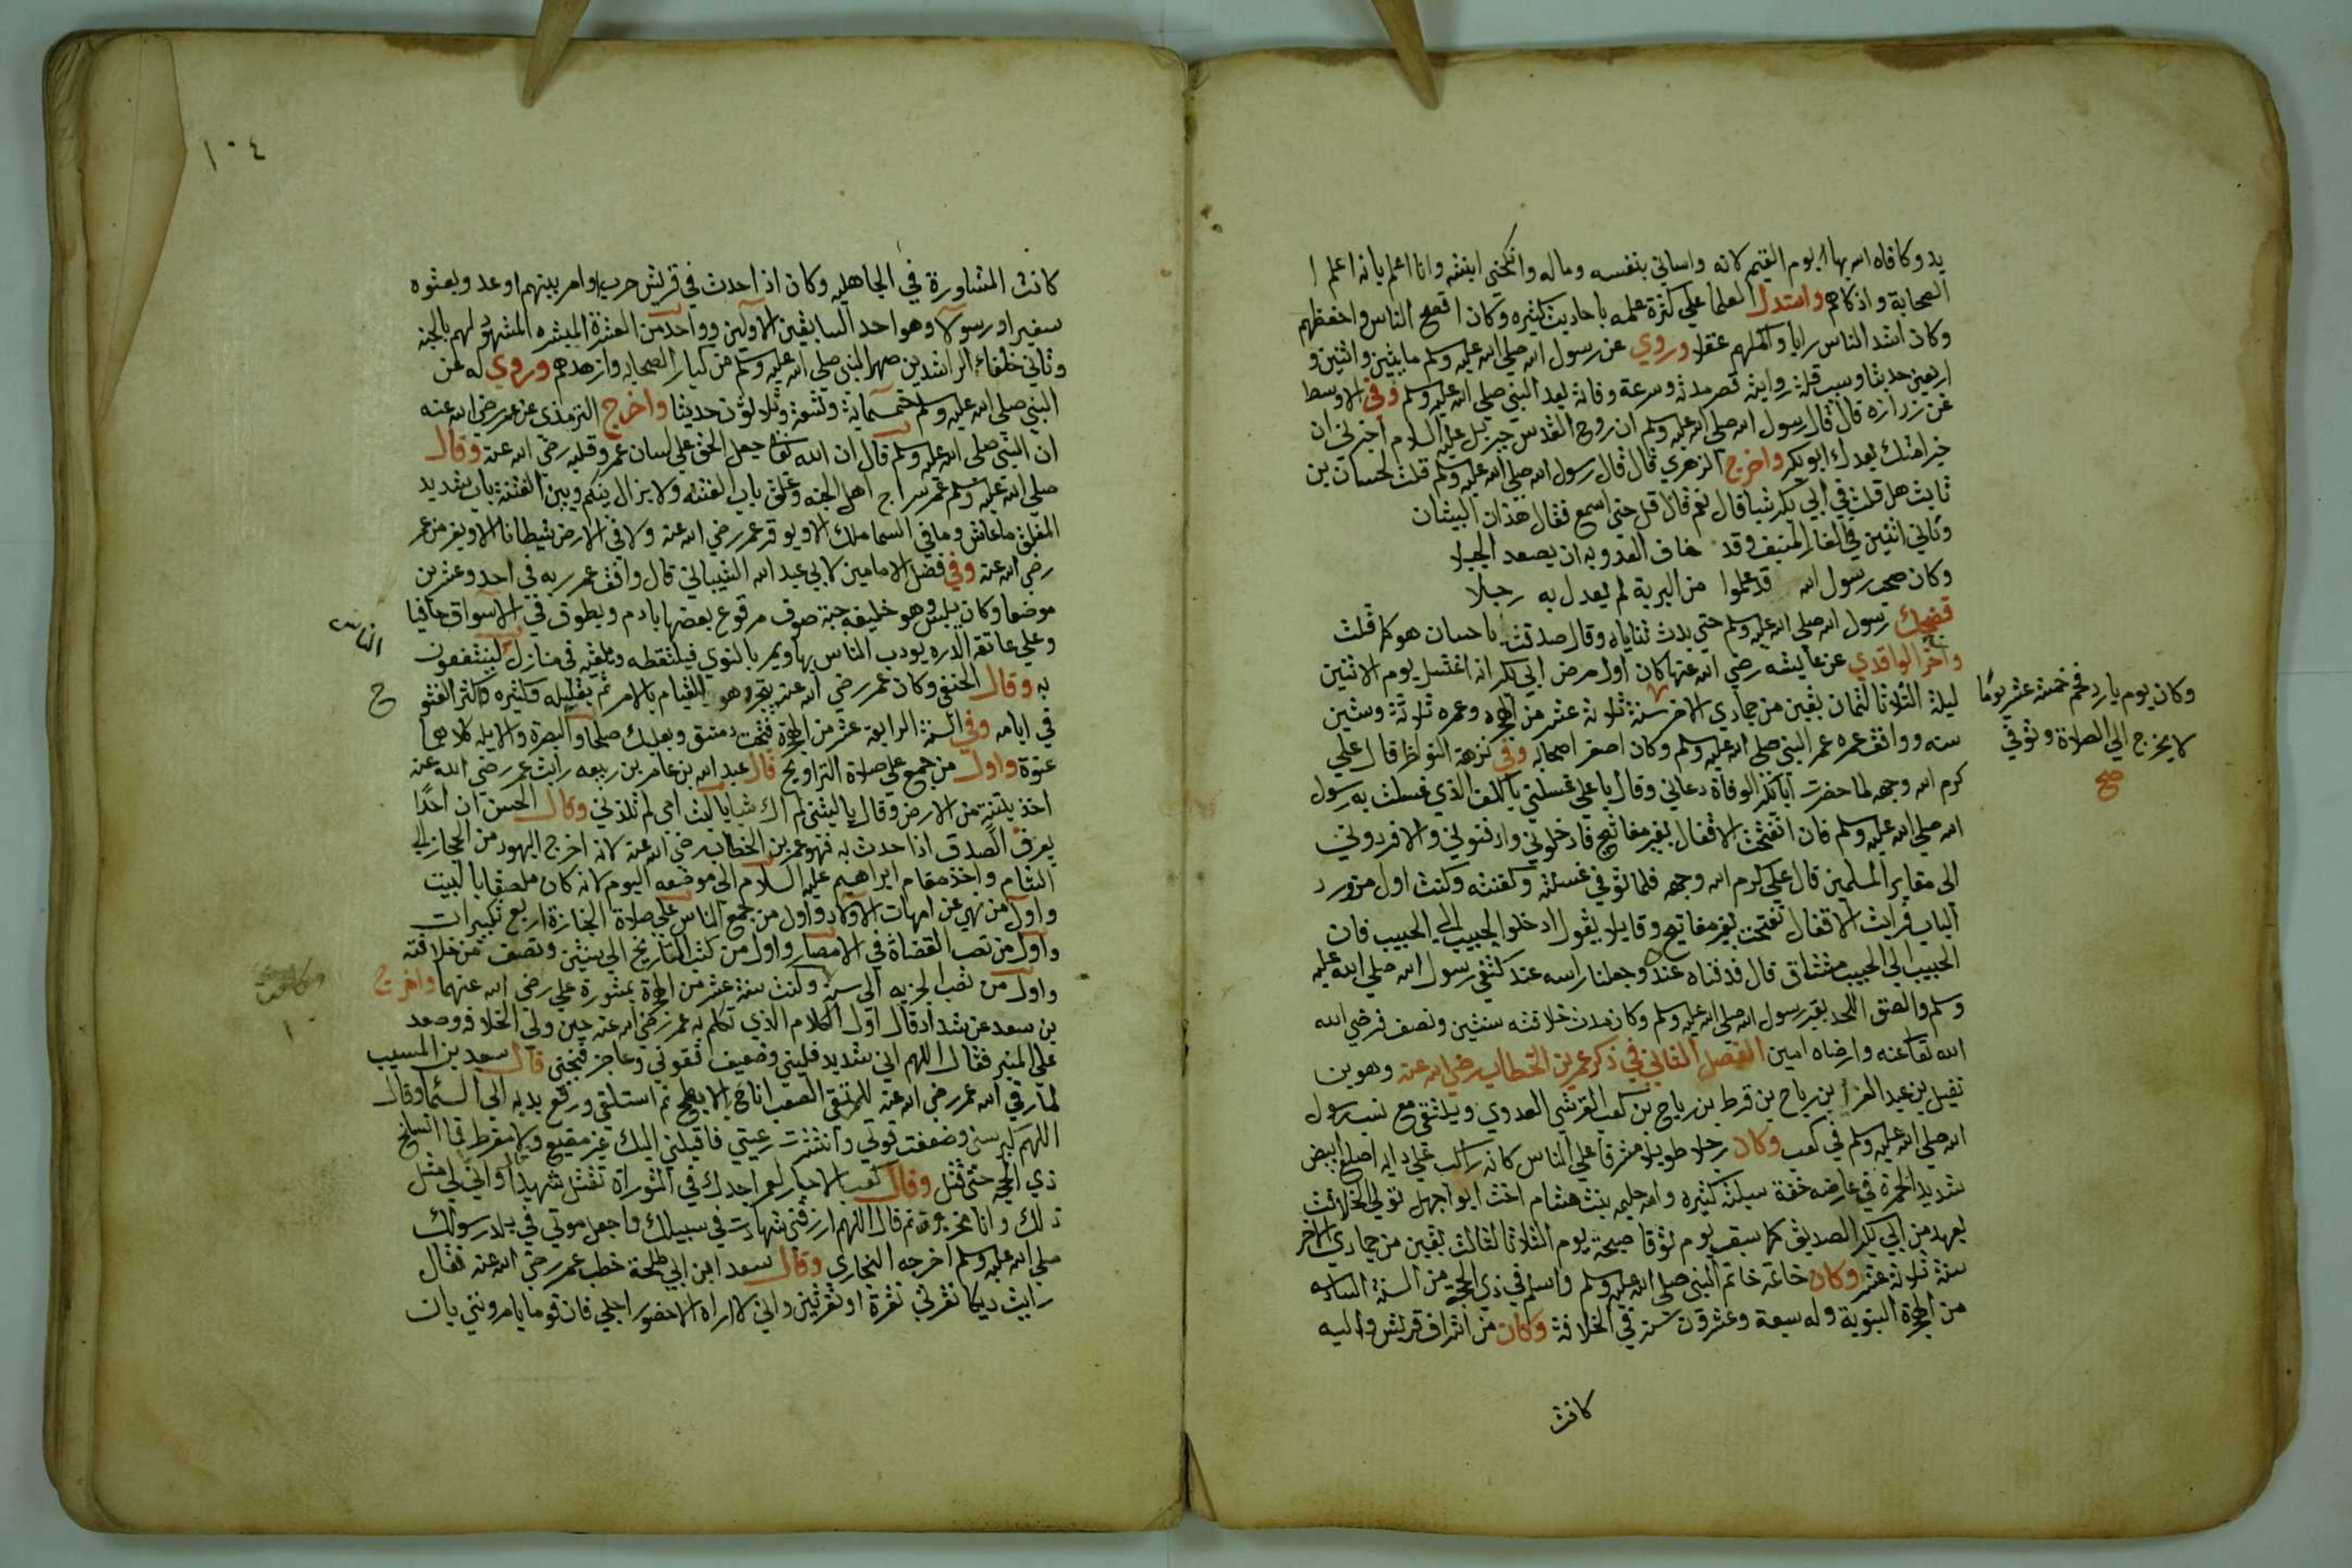 يد وكافاه الله بها يوم القيمه لانه واساني بنفسه وماله وانكحني ابنته وانا اعلم بانه اعلم
الصحابة واذكاهم واستدل العلما علي كثرة علمه باحاديث كثيره وكان افصح الناس واخطبهم
وكان اشد الناس رايا واكملهم عقلا وروي عن رسول الله صلي الله عليه وسلم مايتين واثنين و
اربعين حديثا وسبب قلة روايته قصر مدته وسرعة وفاته بعد النبي صلي الله عليه وسلم وفي الاوسط
عن زرارة قال قال رسول الله صلي الله عليه وسلم ان روح القدس جبريل عليه السلام اخبرني ان
خير امتك بعدك ابو بكر واخرج الزهري قال قال رسول الله صلي الله عليه وسلم قلت لحسان بن
ثابت هل قلت في ابي بكر شيا قال نعم قال قل حتي اسمع فقال هذان البيتان
وثاني اثنين في الغار المنيف وقد خاف العدو به ان يصعد الجبلا
وكان صحب رسول الله قد علموا من البرية لم يعدل به رجلا
فضحك رسول الله صلي الله عليه وسلم حتي بدت ثناياه وقال صدقت يا حسان هو كما قلت
واخرج الواقدي عن عايشه رضي الله عنها كان اول مرض ابي بكر انه اغتسل يوم الاثنين
وكان يوم بارد فحم خمسة عشر يوما
لا يخرج الي الصلاة وتوفي
صح
ليلة الثلاثا لثمان بقين من جمادي الاخر سنة ثلاثة عشر من الهجرة وعمره ثلاثة وستين
سنه ووافق عمره عمر النبي صلي الله عليه وسلم وكان اصغر اصحابه وفي نزهة النواظر قال علي
كرم الله وجهه لما حضرت ابا بكر الوفاة دعاني وقال يا علي غسلني بالكف الذي غسلت به رسول
الله صلي الله عليه وسلم فان انفتحت الاقفال بغير مفاتيح فادخلوني وادفنوني والا فردوني
الي مقابر المسلمين قال علي كرم الله وجهه فلما توفي غسلته وكفنته وكنت اول من ورد
الباب فرايت الاقفال تفتحت بغير مفاتيح وقايلا يقول ادخلوا الحبيب الي الحبيب فان
الحبيب الي الحبيب مشتاق قال فدفناه عنده وجعلنا راسه عند كتفي رسول الله صلي الله عليه
وسلم والصق اللحد بقبر رسول الله صلي الله عليه وسلم وكان مدة خلافته سنتين ونصف فرضي الله
الله تعا عنه وارضاه امين الفصل الثاني في ذكر عمر بن الخطاب رضي الله عنه وهو بن
نفيل بن عبد العزا بن رياح بن قرط بن رياح بن كعب القرشي العدوي ويلتقي مع نسب رسول
الله صلي الله عليه وسلم في كعب وكان رجلا طويلا مشرفا علي الناس كانه راكب علي دابه اصلع ابيض
شديد الحمرة في عارضه خفة سبلته كثيره وامه حليمه بنت هشام اخت ابو جهل تولي الخلافت
بعهد من ابي بكر الصديق كما سبق يوم توفا صبيحة يوم الثلاثا لثالث بقين من جمادي الاخر
سنة ثلاثة عشر وكان خاتمه خاتم النبي صلي الله عليه وسلم واسلم في ذي الحجه من السنة السادسه
من الهجرة النبوية وله سبعة وعشرون سنة في الخلافة وكان من اشراف قريش واليه
كانت
١٠٤
كانت المشاورة في الجاهليه وكان اذا حدث في قريش حرب او امر بينهم اوعد وبعثوه
سفيرا ورسولا وهو احد السابقين الاولين وواحد من العشرة المبشره المشهود لهم بالجنه
وثاني خلفاء الراشدين صهر النبي صلي الله عليه وسلم من كبار الصحابه وازهدهم وروي له عن
النبي صلي الله عليه وسلم خمسماية وتسعة وثلاثون حديثا واخرج الترمذي عن عمر رضي الله عنه
ان النبي صلي الله عليه وسلم قال ان الله تعا جعل الحق علي لسان عمر وقلبه رضي الله عنه وقال
صلي الله عليه وسلم عمر سراج اهل الجنه وغلق باب الفتنه ولا يزال بينكم وبين الفتنة باب شديد
المغلق ما عاش وما في السما ملك الا ويوقر عمر رضي الله عنه ولا في الارض شيطانا الا ويفر من عمر
رضي الله عنه وفي فضل الامامين لابي عبد الله الشيباني قال وافق عمر ربه في احد وعشرين
موضعا وكان يلبس وهو خليفه جبة صوف مرقوع بعضها بادم ويطوف في الاسواق حافيا
وعلي عاتقه الدره يودب الناس بها ويمر بالنوي فيلتقطه ويلقيه في منازل لينتفعون
الناس
به وقال الحنفي وكان عمر رضي الله عنه هو القيام بالامر ثم بقليله وكثيره وكثر الفتو
ح
في ايامه وفي السنة الرابعة عشر من الهجرة فتحت دمشق وبعلبك صلحا والبصرة والابله كلاهما
عنوة واول من جمع علي صلاة التراويح قال عبد الله بن عامر بن ربيعه رايت عمر رضي الله عنه
اخذ بتبنة من الارض وقال يا ليتني لم اك شيا يا ليت امي لم تلدني وكال الحسن ان احدا
يعرف الصدق اذا حدث به فهو عمر بن الخطاب رضي الله عنه لانه اخرج اليهود من الحجاز الي
الشام واخذ مقام ابراهيم عليه السلام الي موضعه اليوم لانه كان ملصقا بالبيت
واول من نهي عن امهات الاولاد واول من جمع الناس علي صلاة الجنازة اربع تكبيرات
واول من نصب القضاة في الامصار واول من كتب التاريخ الي سنتين ونصف من خلافته
واول من نصب الجزيه الي سنة وكتب ستة عشر من الهجرة بمشورة علي رضي الله عنهما واخرج
بن سعد عن شداد قال اول الكلام الذي تكلم به عمر رضي الله عنه حين ولي الخلافه وصعد
علي المنبر فقال اللهم اني شديد فليني وضعيف فقوني وعاجز فنجني قال سعد بن المسيب
لما رقي الله عمر رضي الله عنه للمرتقي الصعب اناخ بالابطح ثم استلقي ورفع يديه الي السما وقال
اللهم كبر سني وضعفت قوتي وانتثرت رعيتي فاقبلني اليك غير مضيع ولا مفرط فما انسلخ
ذي الحجه حتي قتل وقال كعب الاحبار لعمر اجدك في التوراة تقتل شهيدا قال واني لي مثل
ذلك وانا بجزيرة ثم قال اللهم ارزقني شهادت في سبيلك واجعل موتي في بلد رسولك
صلي الله عليه وسلم اخرجه البخاري وقال سعد ابن ابي طلحة خطب عمر رضي الله عنه فقال
رايت ديكا نقرني نقرة او نقرتين واني لا اراه الا حضور اجلي فان قوما يامرونني بان